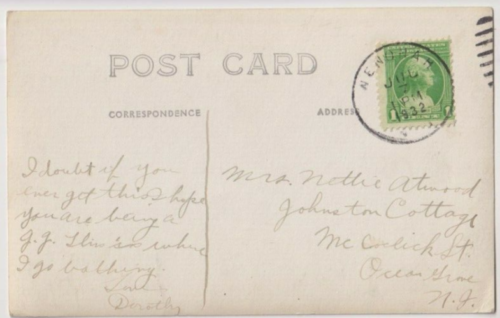 POST CARD
CORRESPONDENCE
ADDRESS
JUL
1932
I doubt if you
ever get this I hope
you are being a
g. g. This is where
I go bathing.
Love
Dorothy
Mrs. Nettie Atwood
Johnston Cottage
St.
Ocean Grove
N. J.